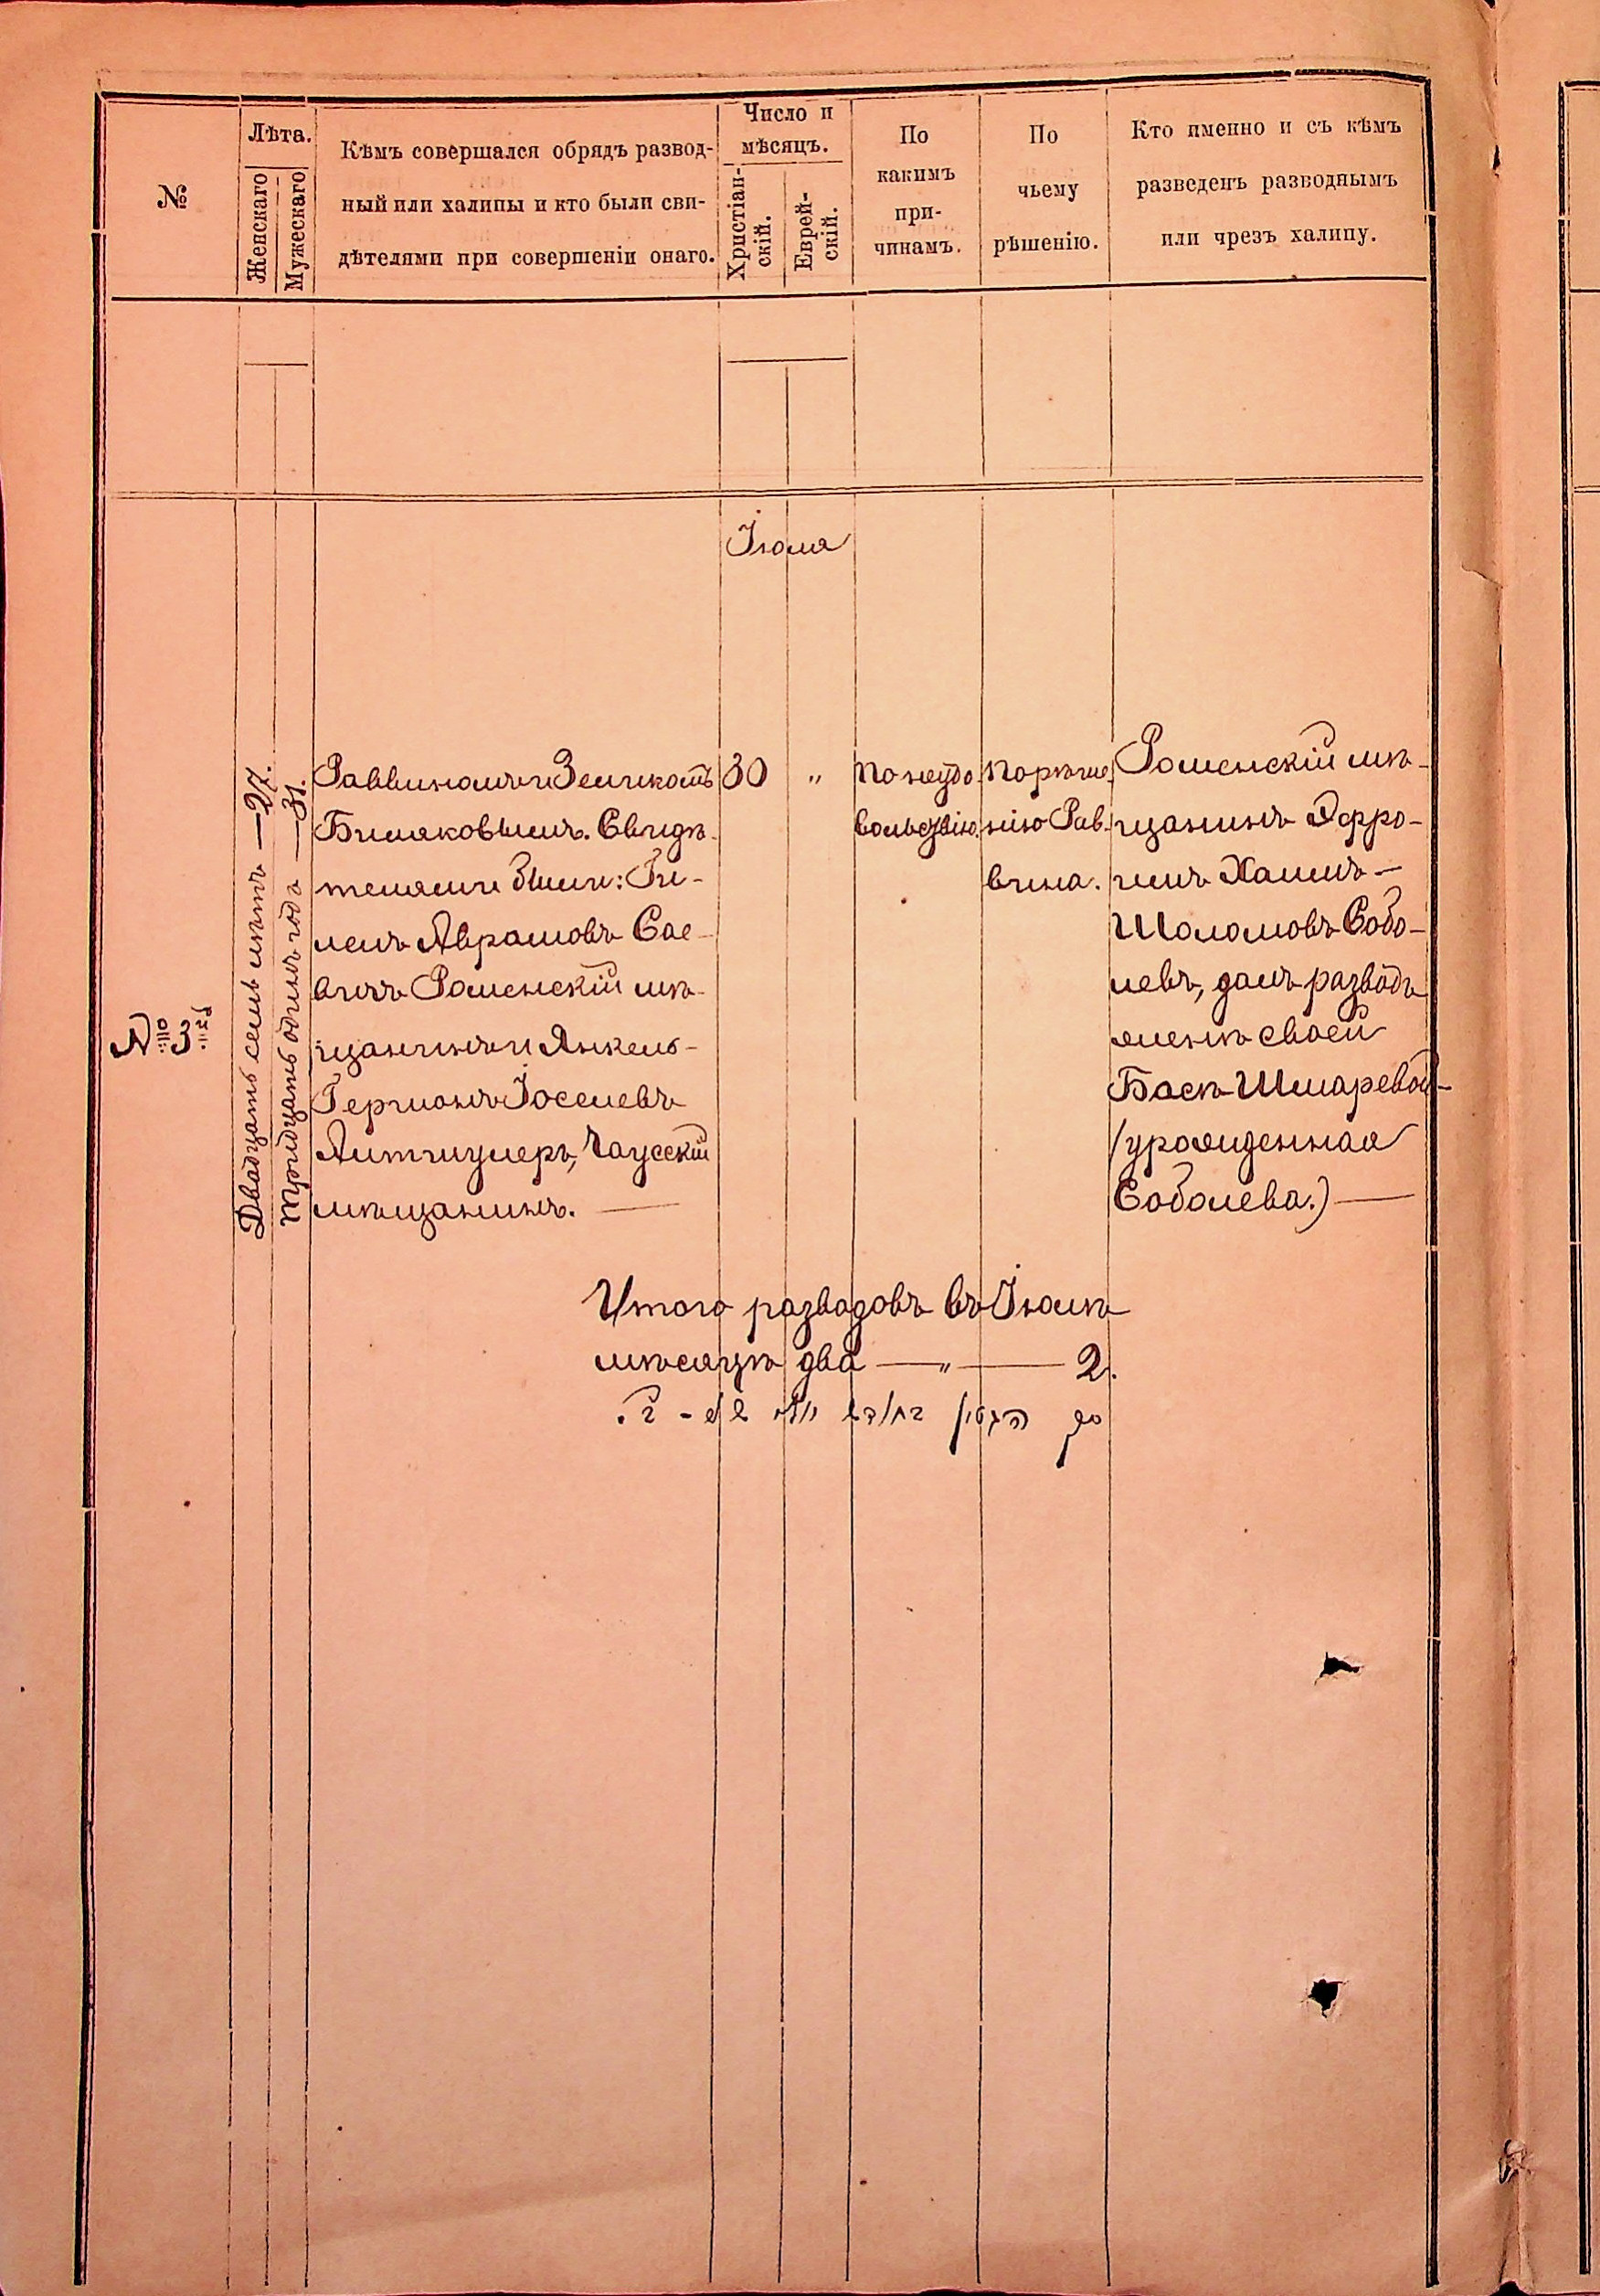 №
Лѣта.
Женскаго
Мужескаго
Кѣмъ совершался обрядъ развод-
ный или халицы и кто были сви-
дѣтелями при совершеніи онаго.
Число и
мѣсяцъ.
Христіан-
скій.
Еврей-
скій.
По
какимъ
при-
чинамъ.
По
чьему
рѣшенію.
Кто именно и съ кѣмъ
разведенъ разводнымъ
или чрезъ халицу.
Іюля
№ 3
Двадцать семь лѣтъ — 27.
Тридцать одинъ годъ — 31.
Раввиномъ Зеликомъ
Бишковымъ. Свидѣ-
телями были: Ги-
лель Аврамовъ Сае-
вичъ Роменскій мѣ-
щанинъ и Янкель-
Герцонъ Іоселевъ
Аитшулеръ, Чаусскій
мѣщанинъ. —
30
"
По неудо-
вольствію.
По рѣше-
нію Рав-
вина.
Роменскій мѣ-
щанинъ Эфро-
имъ Хаимъ —
Шоломовъ Собо-
левъ, далъ разводъ
женѣ своей
Басѣ Шмаревой
(урожденная
Соболева.) —
Итого разводовъ въ Іюлѣ
мѣсяцѣ два — " — 2.